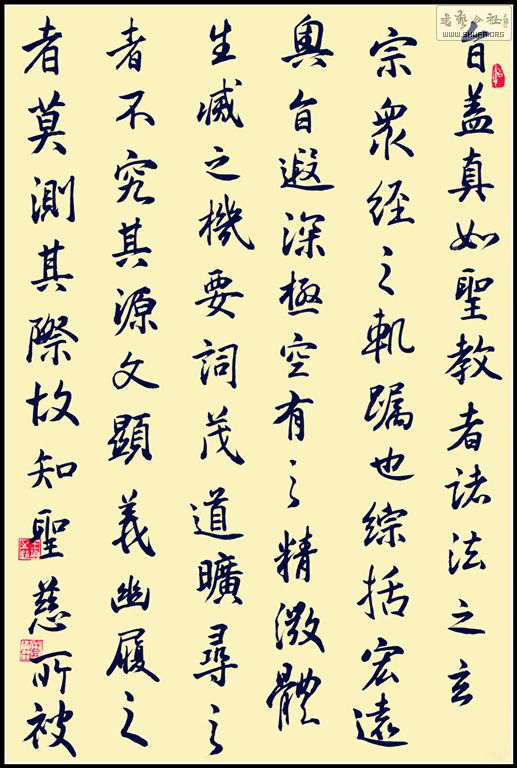 旨蓋真如聖教者諸法之玄
宗衆經之軌躅也綜括宏遠
奧旨遐深極空有之精微體
生滅之機要詞茂道曠尋之
者不究其源文顯義幽履之
者莫測其際故知聖慈所被
書藝公社
WWW.SHUFA.ORG